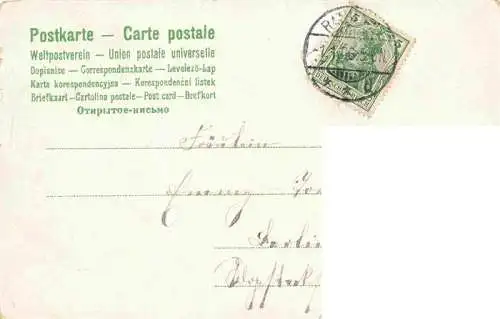 Postkarte – Carte postale
Weltpostverein – Union postale universelle
Dopisnice – Correspondenzkarte – Levelező-Lap
Karta korespondencyjna – Korespondenční lístek
Briefkaart – Cartolina postale – Post card – Brefkort
Открытое-письмо
5 5
Fräulein
Berlin
Klopstock